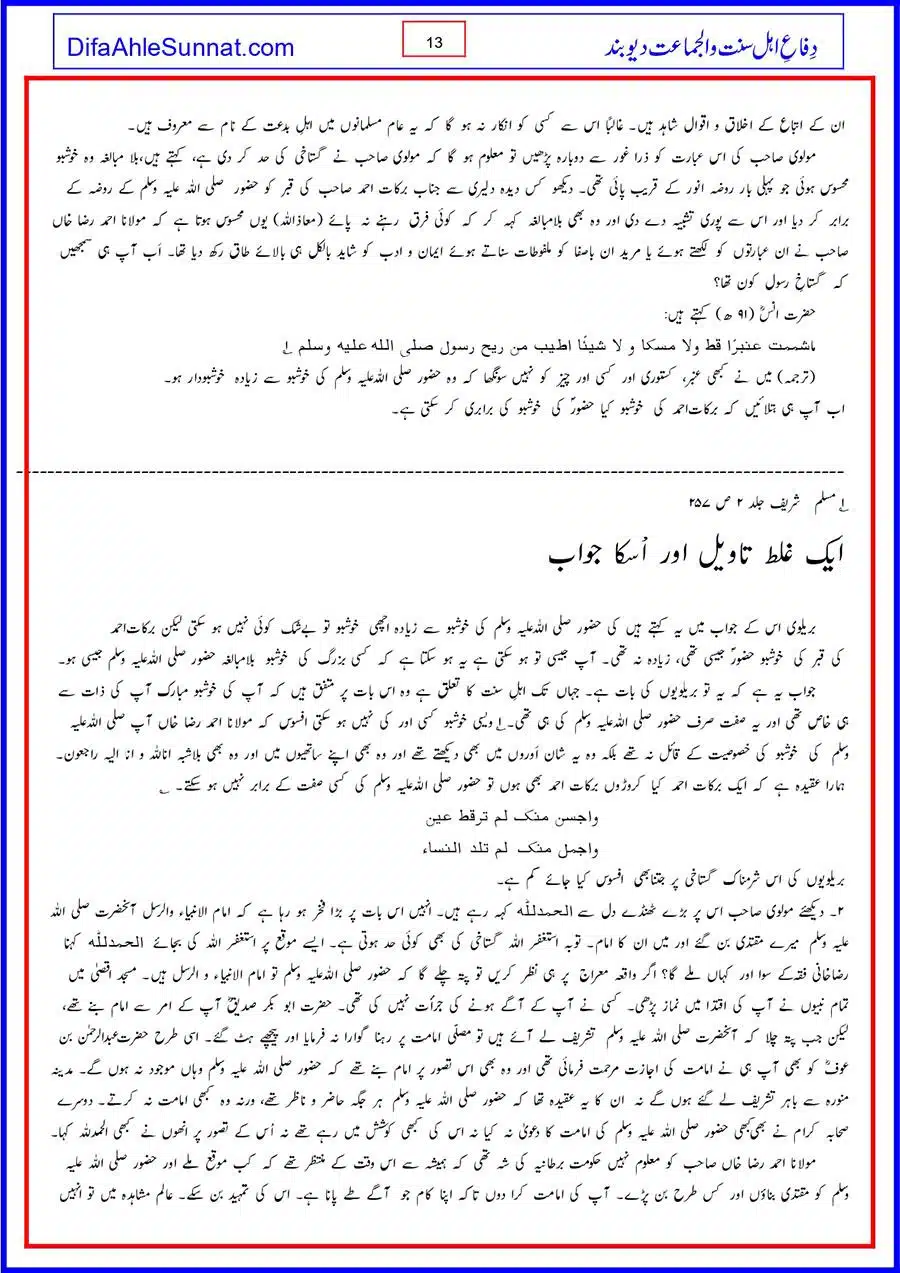 DifaAhleSunnat.com
13
دِفاعِ اہل سنت والجماعت دیوبند
ان کے اتباع کے اخلاق و اقوال شاہد ہیں۔ غالبًا اس سے کسی کو انکار نہ ہو گا کہ یہ عام مسلمانوں میں اہلِ بدعت کے نام سے معروف ہیں۔
مولوی صاحب کی اس عبارت کو ذرا غور سے دوبارہ پڑھیں تو معلوم ہو گا کہ مولوی صاحب نے گستاخی کی حد کر دی ہے، کہتے ہیں،بلا مبالغہ وہ خوشبو
محسوس ہوئی جو پہلی بار روضہ انور کے قریب پائی تھی۔ دیکھو کس دیدہ دلیری سے جناب برکات احمد صاحب کی قبر کو حضور صلی اللہ علیہ وسلم کے روضہ کے
برابر کر دیا اور اس سے پوری تشبیہ دے دی اور وہ بھی بلامبالغہ کہہ کر کہ کوئی فرق رہنے نہ پائے (معاذاللہ) یوں محسوس ہوتا ہے کہ مولانا احمد رضا خاں
صاحب نے ان عبارتوں کو لکھتے ہوئے یا مرید ان باصفا کو ملفوظات سناتے ہوئے ایمان و ادب کو شاید بالکل ہی بالائے طاق رکھ دیا تھا۔ اَب آپ ہی سمجھیں
کہ گستاخِ رسول کون تھا؟
حضرت انسؓ (۹۱ ھ) کہتے ہیں:
ماشممت عنبرًا قط ولا مسکا و لا شیئًا اطیب من ریح رسول صلی الله علیه وسلم لے
(ترجمہ) میں نے کبھی عنبر، کستوری اور کسی اور چیز کو نہیں سونگھا کہ وہ حضور صلی اللہ علیہ وسلم کی خوشبو سے زیادہ خوشبودار ہو۔
اب آپ ہی بتلائیں کہ برکات احمد کی خوشبو کیا حضورؐ کی خوشبو کی برابری کر سکتی ہے۔
لے مسلم شریف جلد ۲ ص ۲۵۷
ایک غلط تاویل اور اُسکا جواب
بریلوی اس کے جواب میں یہ کہتے ہیں کی حضور صلی اللہ علیہ وسلم کی خوشبو سے زیادہ اچھی خوشبو تو بےشک کوئی نہیں ہو سکتی لیکن برکات احمد
کی قبر کی خوشبو حضورؐ جیسی تھی، زیادہ نہ تھی۔ آپ جیسی تو ہو سکتی ہے یہ ہو سکتا ہے کہ کسی بزرگ کی خوشبو بلامبالغہ حضور صلی اللہ علیہ وسلم جیسی ہو۔
جواب یہ ہے کہ یہ تو بریلویوں کی بات ہے۔ جہاں تک اہلِ سنت کا تعلق ہے وہ اس بات پر متفق ہیں کہ آپ کی خوشبو مبارک آپ کی ذات سے
ہی خاص تھی اور یہ صفت صرف حضور صلی اللہ علیہ وسلم کی ہی تھی۔ لے ویسی خوشبو کسی اور کی نہیں ہو سکتی افسوس کہ مولانا احمد رضا خاں آپ صلی اللہ علیہ
وسلم کی خوشبو کی خصوصیت کے قائل نہ تھے بلکہ وہ یہ شان اَوروں میں بھی دیکھتے تھے اور وہ بھی اپنے ساتھیوں میں اور وہ بھی بلاشبہ اناللہ و انا الیہ راجعون۔
ہمارا عقیدہ ہے کہ ایک برکات احمد کیا کروڑوں برکات احمد بھی ہوں تو حضور صلی اللہ علیہ وسلم کی کسی صفت کے برابر نہیں ہو سکتے۔
واجسن منک لم ترقط عین
واجمل منک لم تلد النساء
بریلویوں کی اس شرمناک گستاخی پر جتنابھی افسوس کیا جائے کم ہے۔
۲۔ دیکھئے مولوی صاحب اس پر بڑے ٹھنڈے دل سے الحمدللہ کہہ رہے ہیں۔ انہیں اس بات پر بڑا فخر ہو رہا ہے کہ امام الانبیاء والرسل آنحضرت صلی اللہ
علیہ وسلم میرے مقتدی بن گئے اور میں ان کا امام۔ توبہ استغفر اللہ گستاخی کی بھی کوئی حد ہوتی ہے۔ ایسے موقع پر استغفر اللہ کی بجائے الحمدللہ کہنا
رضاخانی فقہ کے سوا اور کہاں ملے گا؟ اگر واقعہ معراج پر ہی نظر کریں تو پتہ چلے گا کہ حضور صلی اللہ علیہ وسلم تو امام الانبیاء و الرسل ہیں۔ مسجد اقصیٰ میں
تمام نبیوں نے آپ کی اقتدا میں نماز پڑھی۔ کسی نے آپ کے آگے ہونے کی جرأت نہیں کی تھی۔ حضرت ابو بکر صدیقؓ آپ کے امر سے امام بنے تھے،
لیکن جب پتہ چلا کہ آنحضرت صلی اللہ علیہ وسلم تشریف لے آئے ہیں تو مصلّی امامت پر رہنا گوارا نہ فرمایا اور پیچھے ہٹ گئے۔ اسی طرح حضرت عبدالرحمٰن بن
عوفؓ کو بھی آپ ہی نے امامت کی اجازت مرحمت فرمائی تھی اور وہ بھی اس تصور پر امام بنے تھے کہ حضور صلی اللہ علیہ وسلم وہاں موجود نہ ہوں گے۔ مدینہ
منورہ سے باہر تشریف لے گئے ہوں گے نہ ان کا یہ عقیدہ تھا کہ حضور صلی اللہ علیہ وسلم ہر جگہ حاضر و ناظر تھے، ورنہ وہ کبھی امامت نہ کرتے۔ دوسرے
صحابہ کرام نے بھی کبھی حضور صلی اللہ علیہ وسلم کی امامت کا دعویٰ نہ کیا نہ اس کی کبھی کوشش میں رہے تھے نہ اُس کے تصور پر انھوں نے کبھی الحمدللہ کہا۔
مولانا احمد رضا خاں صاحب کو معلوم نہیں حکومت برطانیہ کی شہ تھی کہ ہمیشہ سے اس وقت کے منتظر تھے کہ کب موقع ملے اور حضور صلی اللہ علیہ
وسلم کو مقتدی بناؤں اور کس طرح بن پڑے۔ آپ کی امامت کرا دوں تاکہ اپنا کام جو آگے طے پانا ہے۔ اس کی تمہید بن سکے۔ عالم مشاہدہ میں تو انہیں